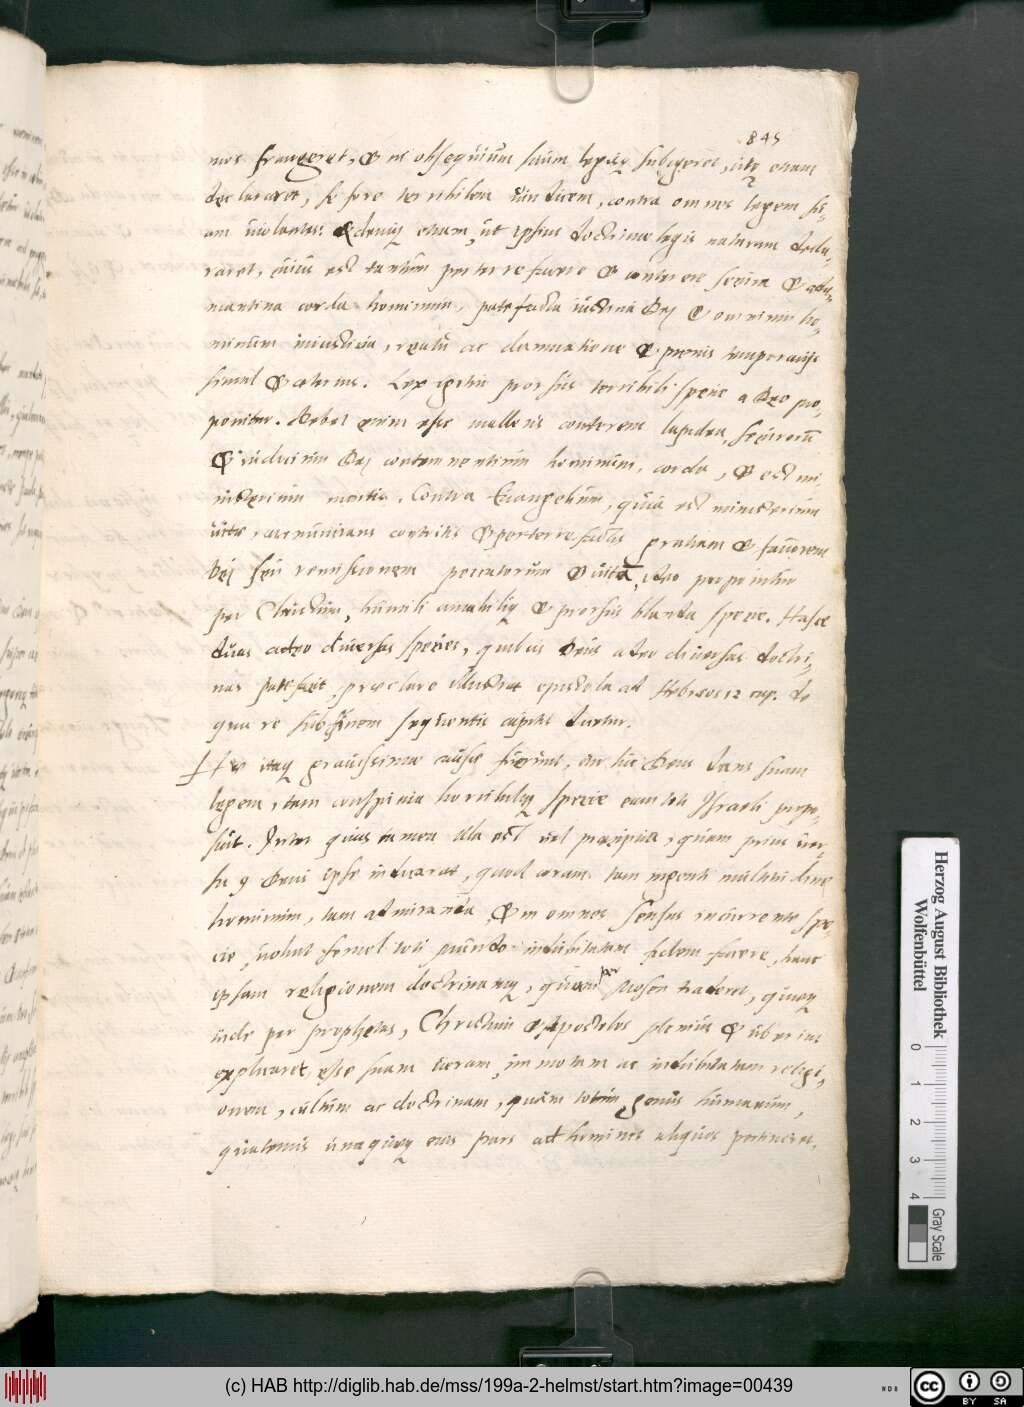 845
mos frangeret, & in obsequium suum legisq subigeret, utq etiam
declararet, se fore terribilem vindicem, contra omnes legem su-
am violantes. & deniq etiam, ut ipsius doctrinae legis naturam decla-
raret, cuius est tantum perterrefacere & conterere secura & ada-
mantina corda hominum, patefacta iustitia Dei & omnium ho-
minum iniustitia, reatu ac damnatione & poenis temporalibus
simul & aeternis. Lex igitur prorsus terribili specie a Deo pro-
ponitur. Debet enim esse malleus conterens lapidea, securorum
& Dei contemnentium hominum, corda, & est mi-
nisterium mortis. Contra Euangelium, quia est ministerium
vitae, annuncians contritis & perterrefactis gratiam & fauorem
Dei seu remissionem peccatorum & vitam, ideo proponitur
per Christum, humili amabiliq & prorsus blanda specie. Hasce
duas adeo diversas species, quibus Deus adeo diversas doctri-
nas patefecit, praeclare illustrat epistola ad Hebraeos 12 cap. de
qua re sub finem sequentis capitis dicetur.
Hae itaq gravissimae causae fuerunt, cur hic Deus dans suam
legem, tam conspicua horribiliq specie eam toti Israeli propo-
suit. Inter quas tamen illa est vel praecipua, quam prius ver-
su 9 Deus ipse indicarat, quod coram tam ingenti multitudine
hominum, tam admiranda & in omnes sensus incurrente spe-
cie, voluit semel toti mundo indubitatam fidem facere, hanc
ipsam religionem doctrinamq, quam per Mosen traderet, quamq
inde per prophetas, Christum & Apostolos plenius & uberius
explicaret, esse suam veram, immotam ac indubitatam religi-
onem, cultum ac doctrinam, quam totum genus humanum,
quatenus unaquaeq eius pars ad homines aliquos pertineret,
Herzog August Bibliothek
Wolfenbüttel
0 1 2 3 4
Gray Scale
(c) HAB http://diglib.hab.de/mss/199a-2-helmst/start.htm?image=00439
cc BY SA